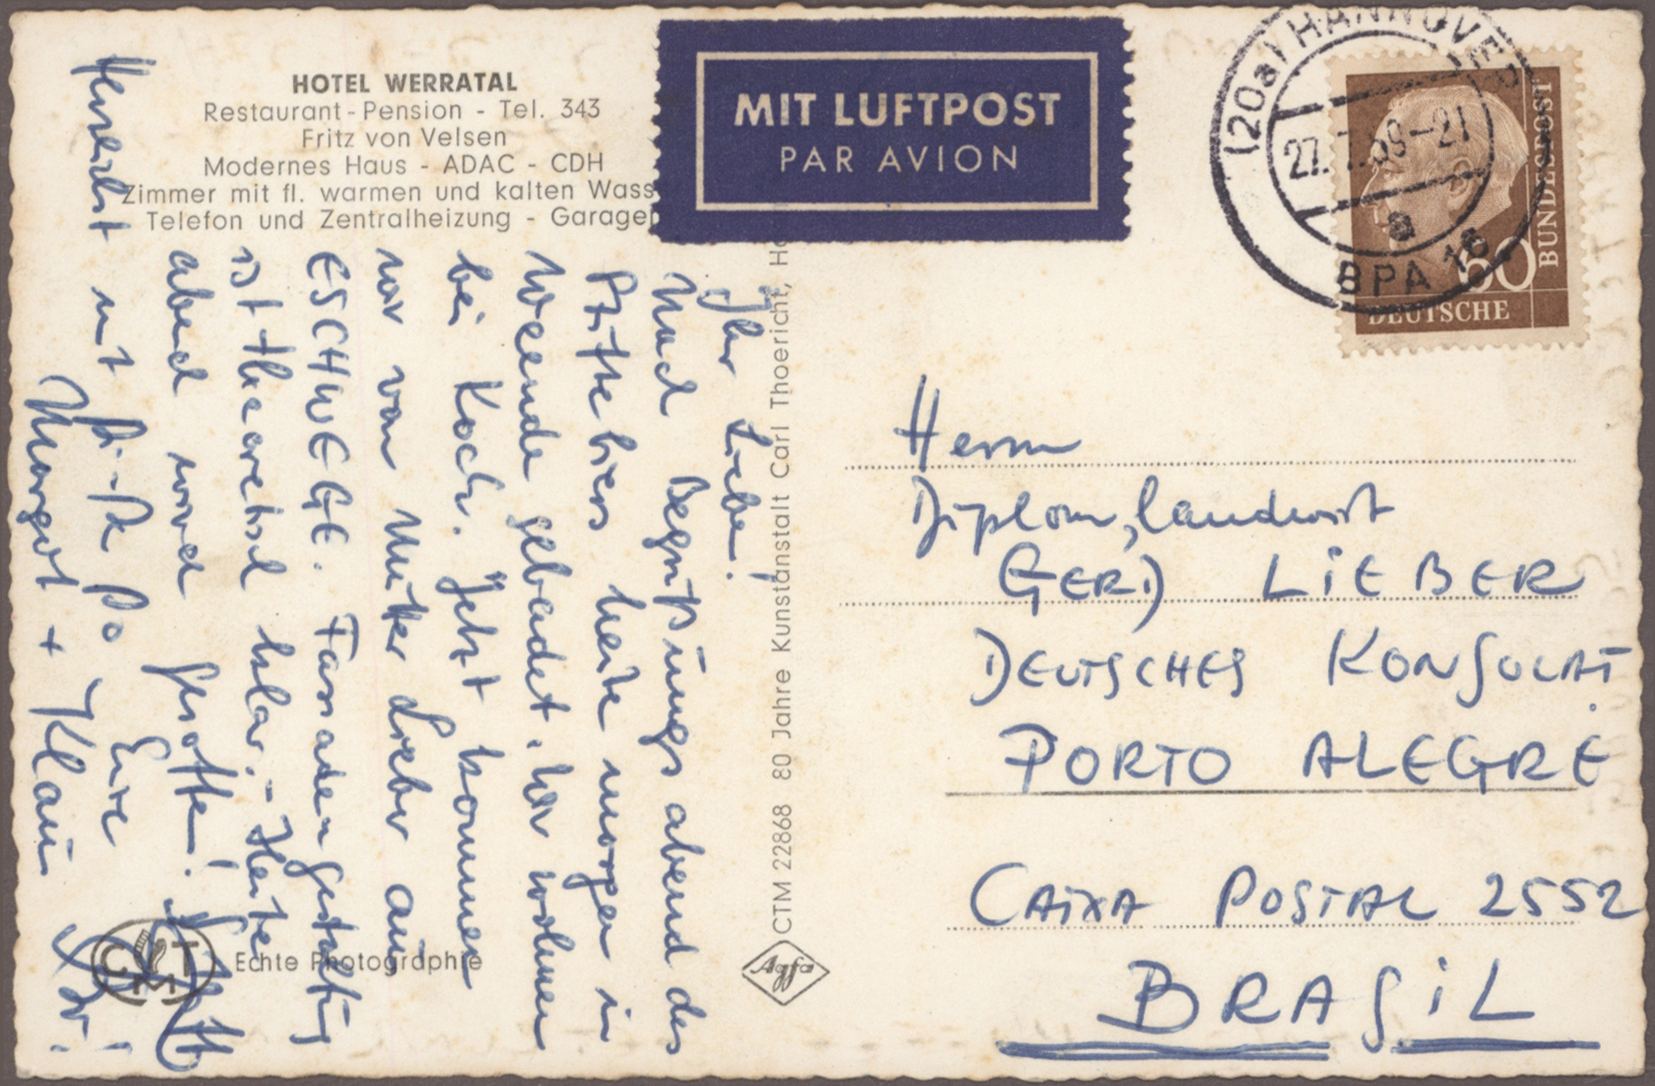 HOTEL WERRATAL
Restaurant-Pension - Tel. 343
Fritz von Velsen
Modernes Haus - ADAC - CDH
Zimmer mit fl. warmen und kalten Wass
Telefon und Zentralheizung - Garage
MIT LUFTPOST
PAR AVION
(20a) HANNOVER
27. 7.59-21
a
BPA 16
60
DEUTSCHE
BUNDESPOST
Ihr Liebe!
Nach Begrüßungsabend des
heute morgen in
Weende gebadet. Wir wohnen
bei Koch. Jetzt kommen
wir von Mutter Lieber aus
ESCHWEGE. Fassadengestaltung
ist theoretisch klar. - Heute
abend wird
Herzlichst mit Eure
Margot + Klaus
CTM 22868 80 Jahre Kunstanstalt Carl Thoericht, H
Agfa
CTM
Echte Photographie
Herrn
Diplomlandwirt
GERD LIEBER
DEUTSCHES KONSULAT
PORTO ALEGRE
CAIXA POSTAL 2552
BRASIL